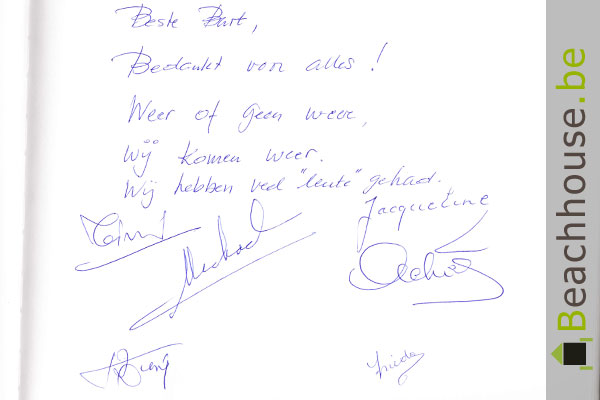 Beste Bart,
Bedankt van alles!
Weer of geen weer,
Wij komen weer.
Wij hebben veel "leute" gehad.
Jacqueline
Michael
Frieda
Beachhouse.be